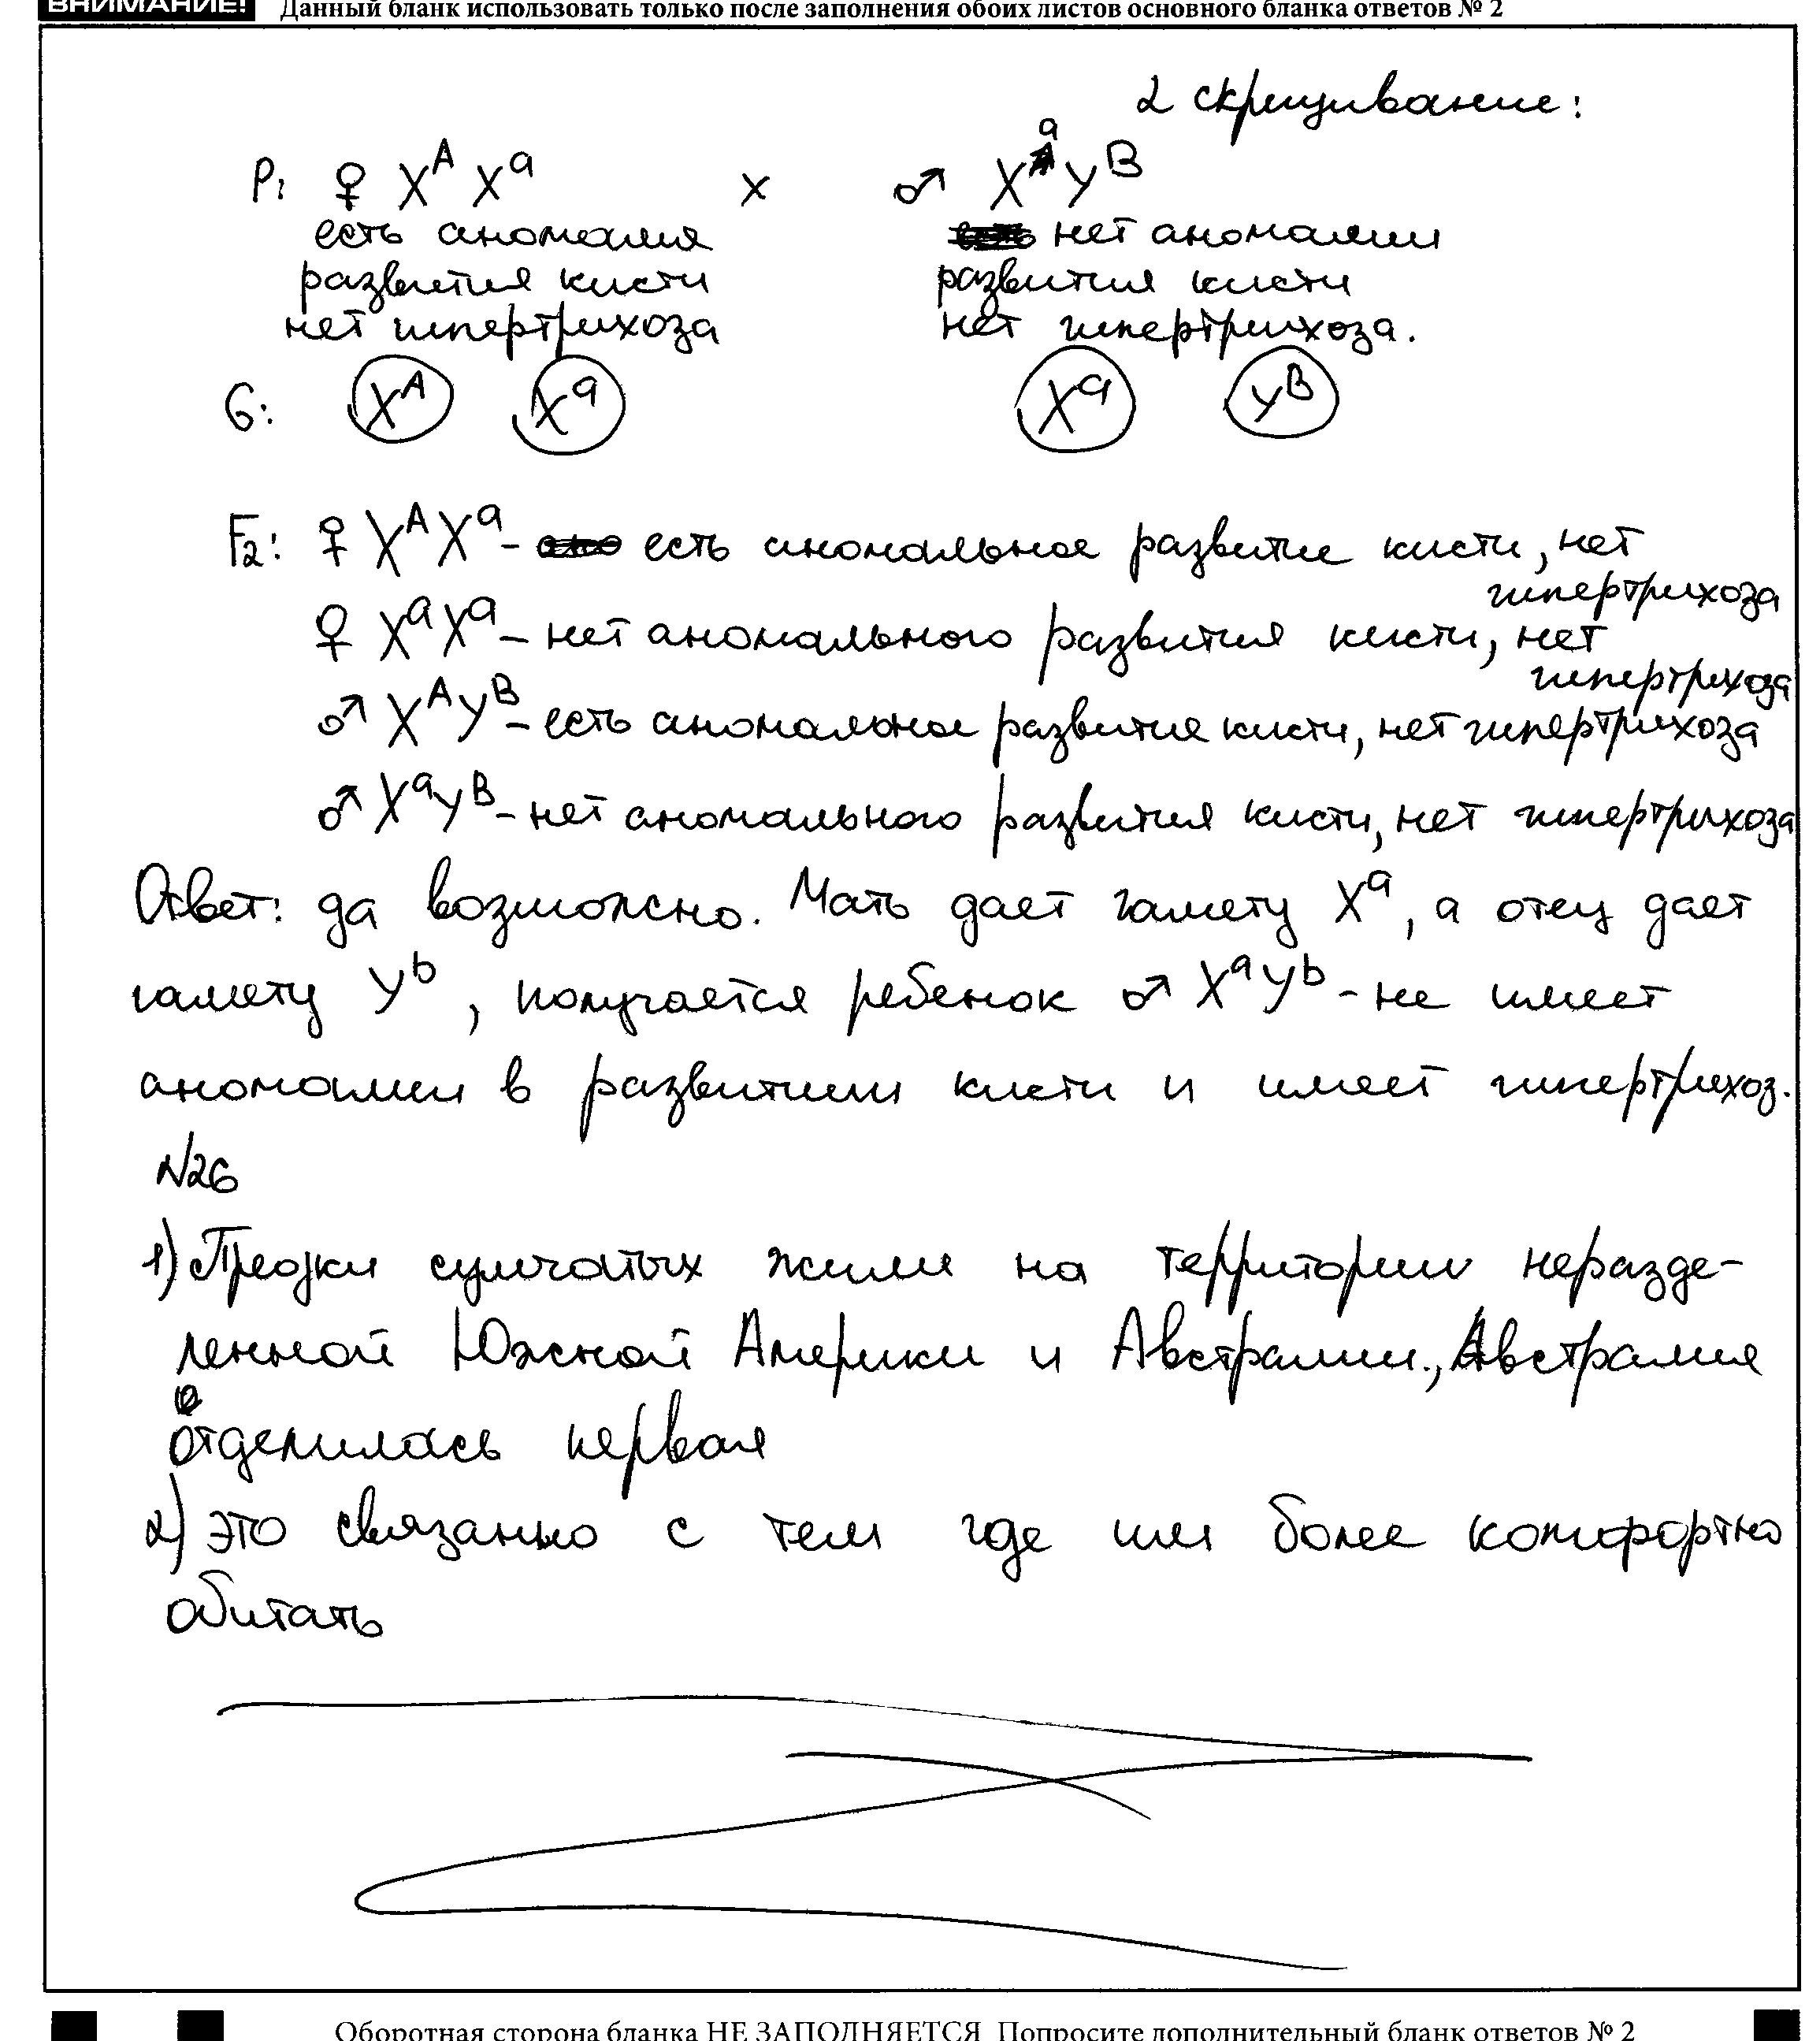 ВНИМАНИЕ! Данный бланк использовать только после заполнения обоих листов основного бланка ответов № 2
2 скрещивание:
P: ♀ X^A X^a x ♂ X^a Y^B
есть аномалия нет аномалии
развития кисти развития кисти
нет гипертрихоза нет гипертрихоза.
G: X^A X^a X^a Y^B
F₂: ♀ X^A X^a - есть аномальное развитие кисти, нет
гипертрихоза
♀ X^a X^a - нет аномального развития кисти, нет
гипертрихоза
♂ X^A Y^B - есть аномальное развитие кисти, нет гипертрихоза
♂ X^a Y^B - нет аномального развития кисти, нет гипертрихоза
Ответ: да возможно. Мать дает гамету X^a, а отец дает
гамету Y^b, получается ребенок ♂ X^a Y^b - не имеет
аномалии в развитии кисти и имеет гипертрихоз.
№26
1) Предки сумчатых жили на территории неразде-
ленной Южной Америки и Австралии., Австралия
отделилась первая
2) это связанно с тем где им более комфортно
обитать
Оборотная сторона бланка НЕ ЗАПОЛНЯЕТСЯ Попросите дополнительный бланк ответов № 2